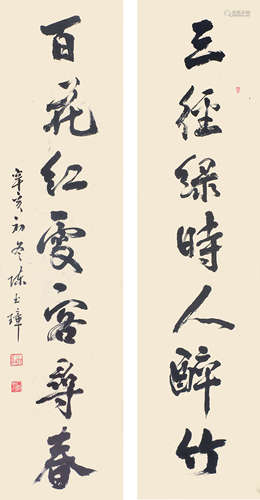 三徑綠時人醉竹
百花紅處客尋春
辛亥初冬陈玉璋